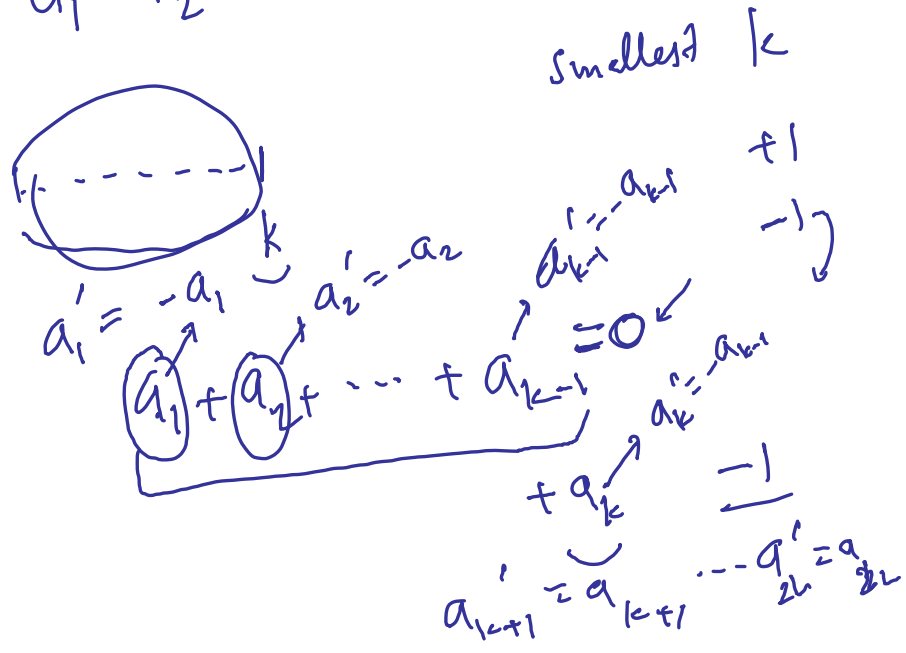 smallest k
+1
-1
k
a'₁ = -a₁
a'₂ = -a₂
a'ₖ₋₁ = -aₖ₋₁
a₁ + a₂ + ... + aₖ₋₁ = 0
+ aₖ
a'ₖ = -aₖ₋₁
-1
a'ₖ₊₁ = aₖ₊₁ ... a'₂ₙ = a₂ₙ